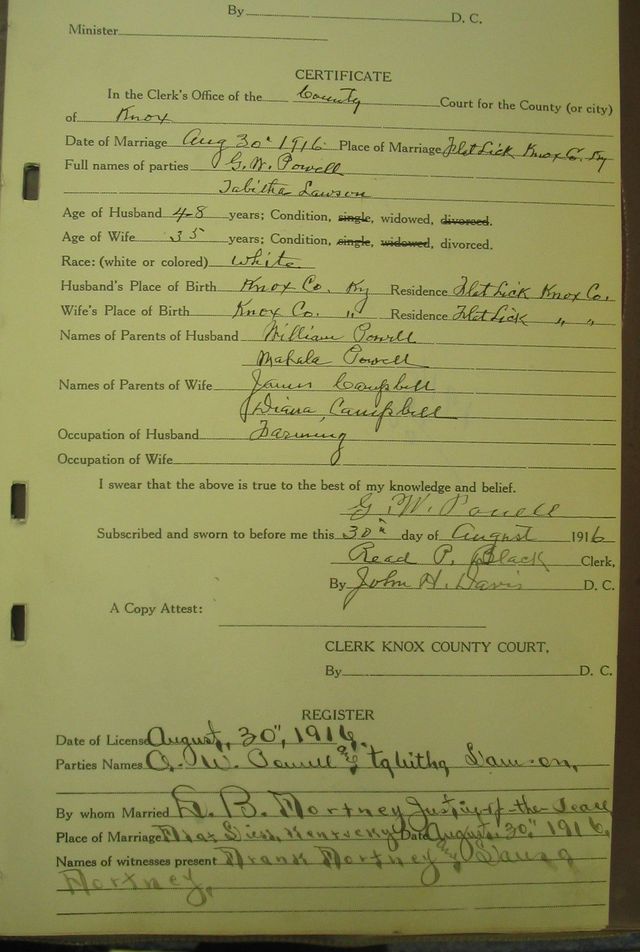 By D. C.
Minister
CERTIFICATE
In the Clerk's Office of the County Court for the County (or city)
of Knox
Date of Marriage Aug 30" 1916 Place of Marriage Flat Lick Knox Co. Ky
Full names of parties G. W. Powell
Tabitha Lawson
Age of Husband 48 years; Condition, single, widowed, divorced.
Age of Wife 35 years; Condition, single, widowed, divorced.
Race: (white or colored) White
Husband's Place of Birth Knox Co. Ky Residence Flat Lick Knox Co.
Wife's Place of Birth Knox Co. " Residence Flat Lick " "
Names of Parents of Husband William Powell
Mahala Powell
Names of Parents of Wife James Campbell
Diana Campbell
Occupation of Husband Farming
Occupation of Wife
I swear that the above is true to the best of my knowledge and belief.
G. W. Powell
Subscribed and sworn to before me this 30" day of August 1916
Read P. Black Clerk,
By John H. Davis D. C.
A Copy Attest:
CLERK KNOX COUNTY COURT.
By D. C.
REGISTER
Date of License August, 30", 1916,
Parties Names G. W. Powell & tabitha Lawson,
By whom Married B. Justice of the Peace
Place of Marriage Flat Lick, Kentucky Date August 30" 1916,
Names of witnesses present Frank &